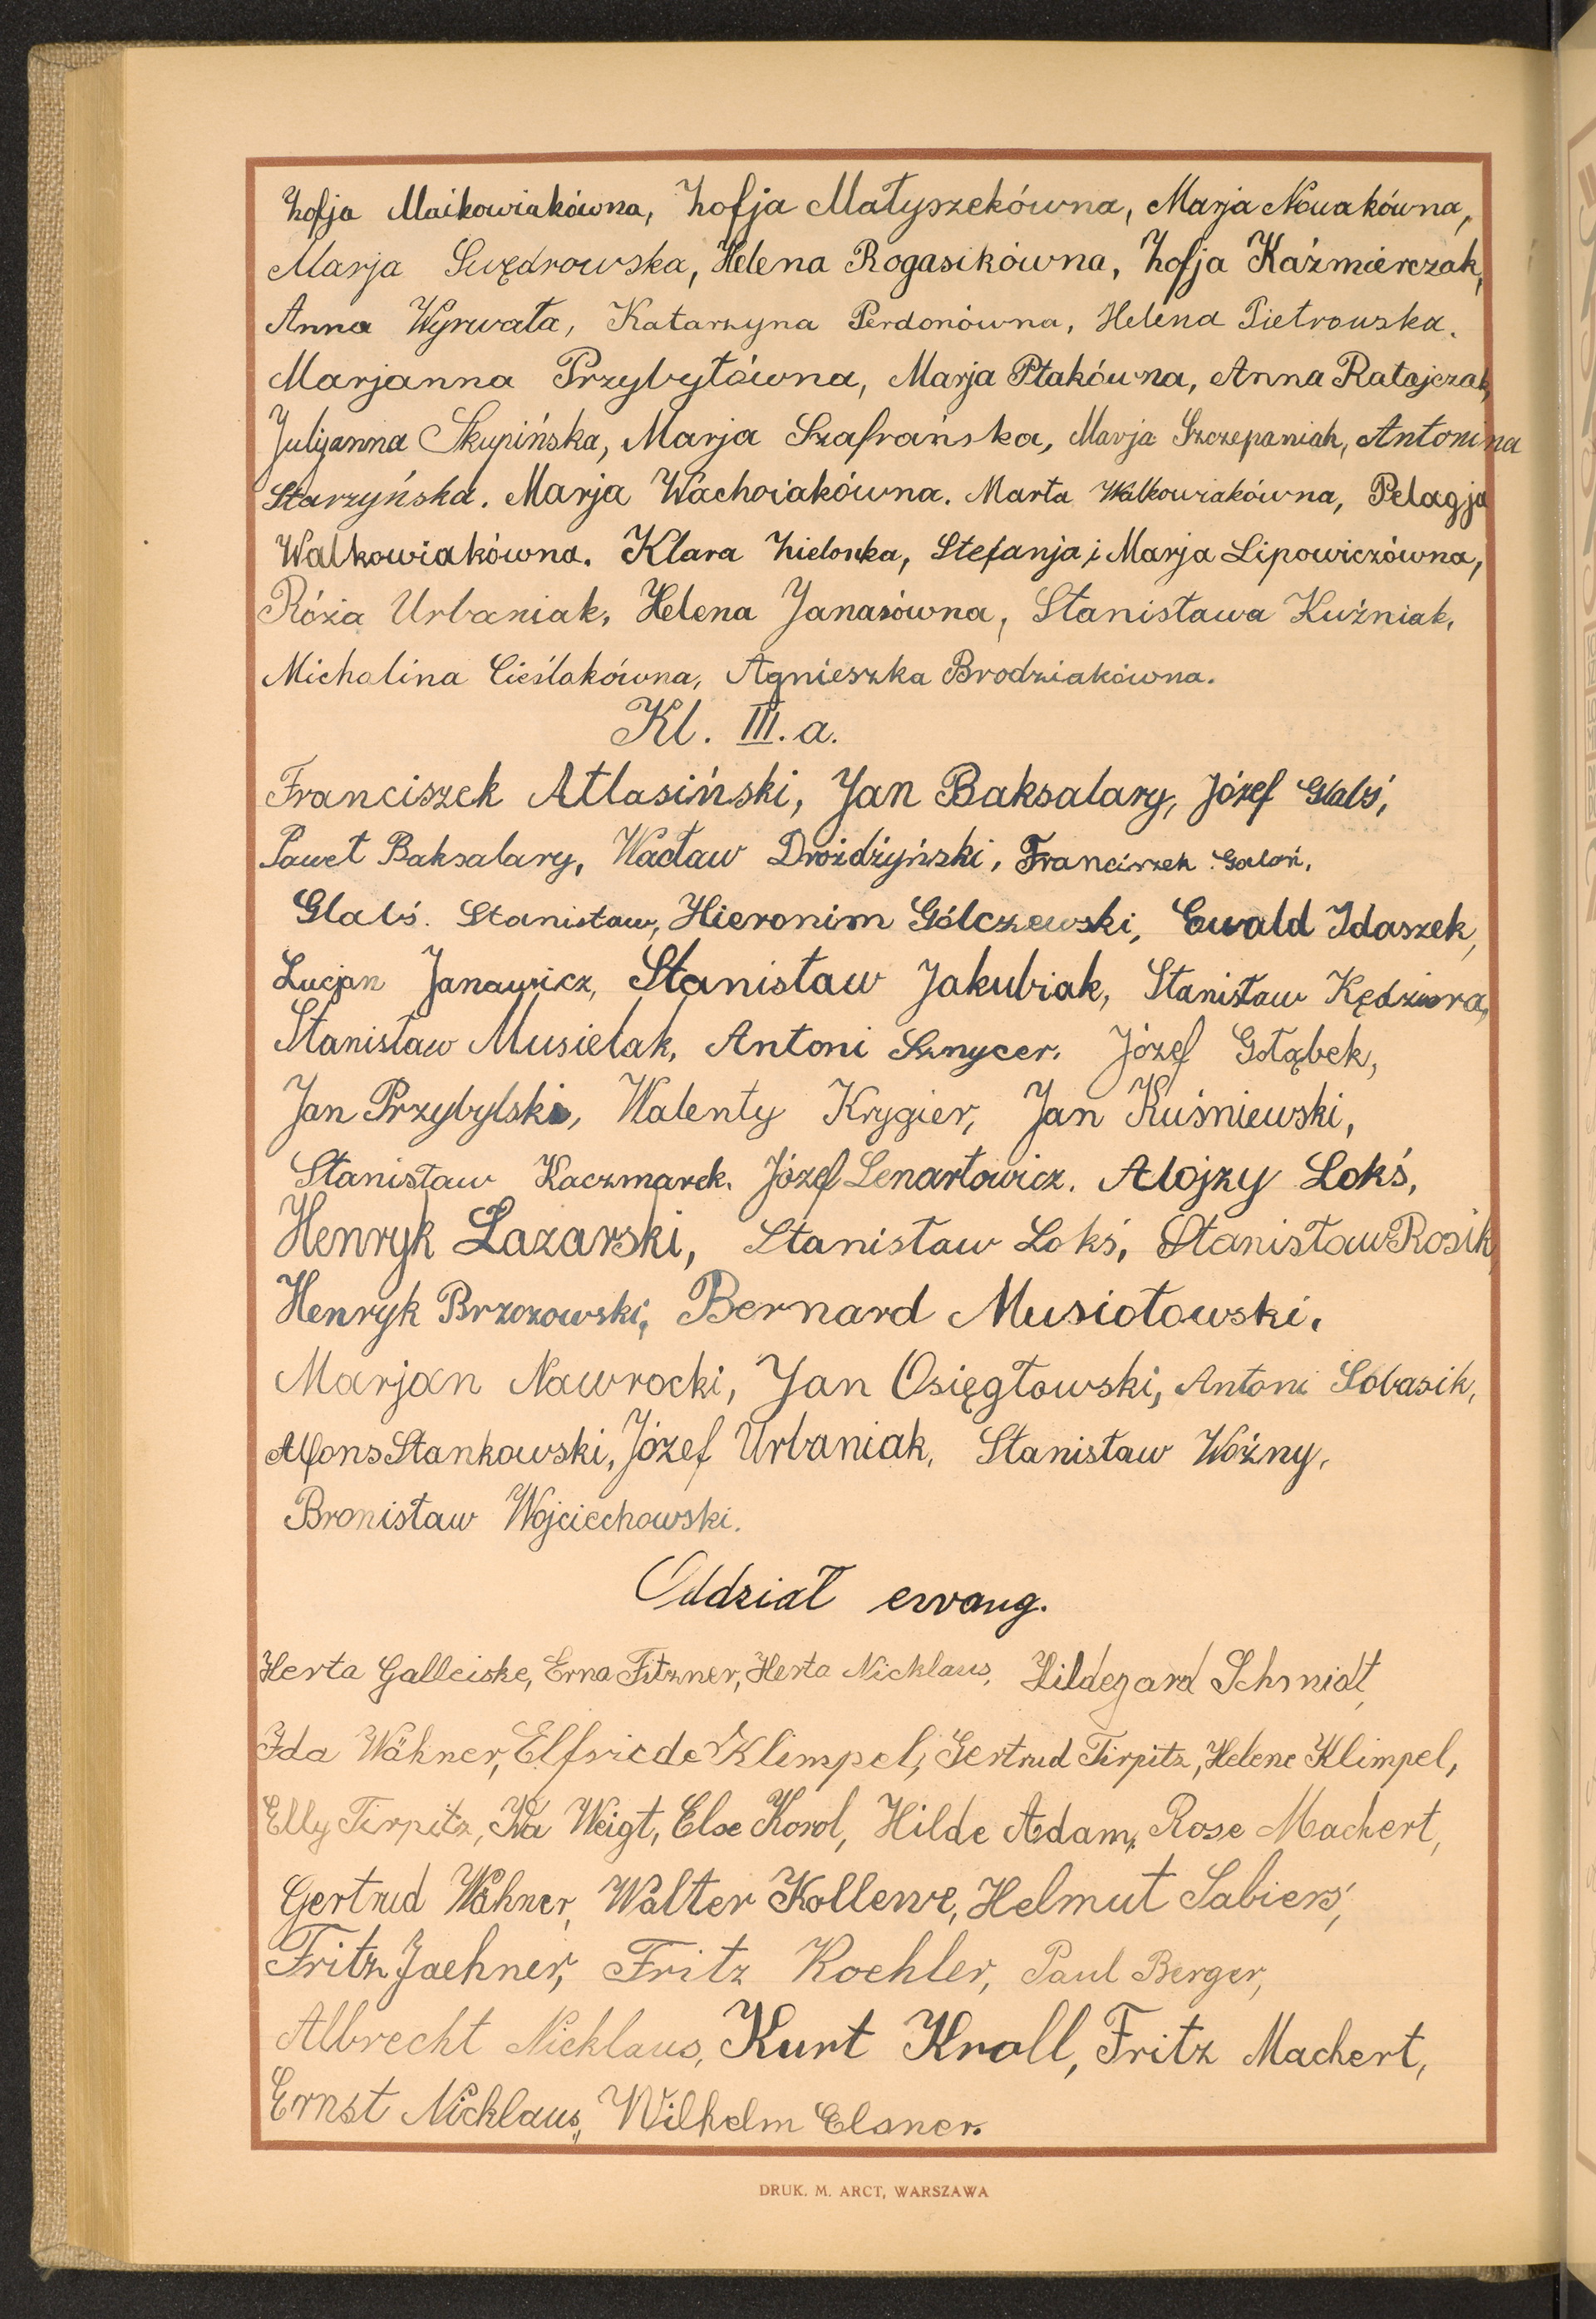 Zofja Maikowiakówna, Zofja Matyszekówna, Marja Nowakówna,
Marja Swędrowska, Helena Rogasikówna, Zofja Kaźmierczak,
Anna Wyrwała, Katarzyna Perdonówna, Helena Pietrowska.
Marjanna Przybyłówna, Marja Ptakówna, Anna Ratajczak,
Julijanna Skupińska, Marja Szafrańska, Marja Szczepaniak, Antonina
Starzyńska. Marja Wachoiakówna. Marta Walkowiakówna, Pelagja
Walkowiakówna. Klara Zielonka, Stefanja i Marja Lipowiczówna,
Róża Urbaniak, Helena Janasówna, Stanisława Kuźniak,
Michalina Cieślakówna, Agnieszka Brodziakówna.
Kl. III. a.
Franciszek Atlasiński, Jan Baksalary, Józef Glabś,
Paweł Baksalary, Wacław Drożdżyński, Franciszek Galoń,
Glabś. Stanisław, Hieronim Gólczewski, Ewald Idaszek,
Lucjan Janawicz, Stanisław Jakubiak, Stanisław Kędziora,
Stanisław Musielak, Antoni Sznycer. Józef Gołąbek,
Jan Przybylski, Walenty Krygier, Jan Kuśniewski,
Stanisław Kaczmarek. Józef Lenartowicz. Alojzy Lokś,
Henryk Lazarski, Stanisław Lokś, Stanisław Rosik,
Henryk Brzozowski, Bernard Musiołowski,
Marjan Nawrocki, Jan Osięgłowski, Antoni Sobasik,
Alfons Stankowski, Józef Urbaniak, Stanisław Woźny,
Bronisław Wojciechowski.
Oddział ewang.
Herta Galleiske, Erna Fitzner, Herta Nicklaus, Hildegard Schmidt,
Ida Wähner, Elfriede Klimpel, Gertrud Tirpitz, Helene Klimpel,
Elly Tirpitz, Ida Weigt, Else Korol, Hilde Adam, Rose Machert,
Gertrud Wähner, Walter Kollewe, Helmut Sabiers,
Fritz Jaehner, Fritz Koehler, Paul Berger,
Albrecht Nicklaus, Kurt Kroll, Fritz Machert,
Ernst Nicklaus, Wilhelm Elsner.
DRUK. M. ARCT, WARSZAWA